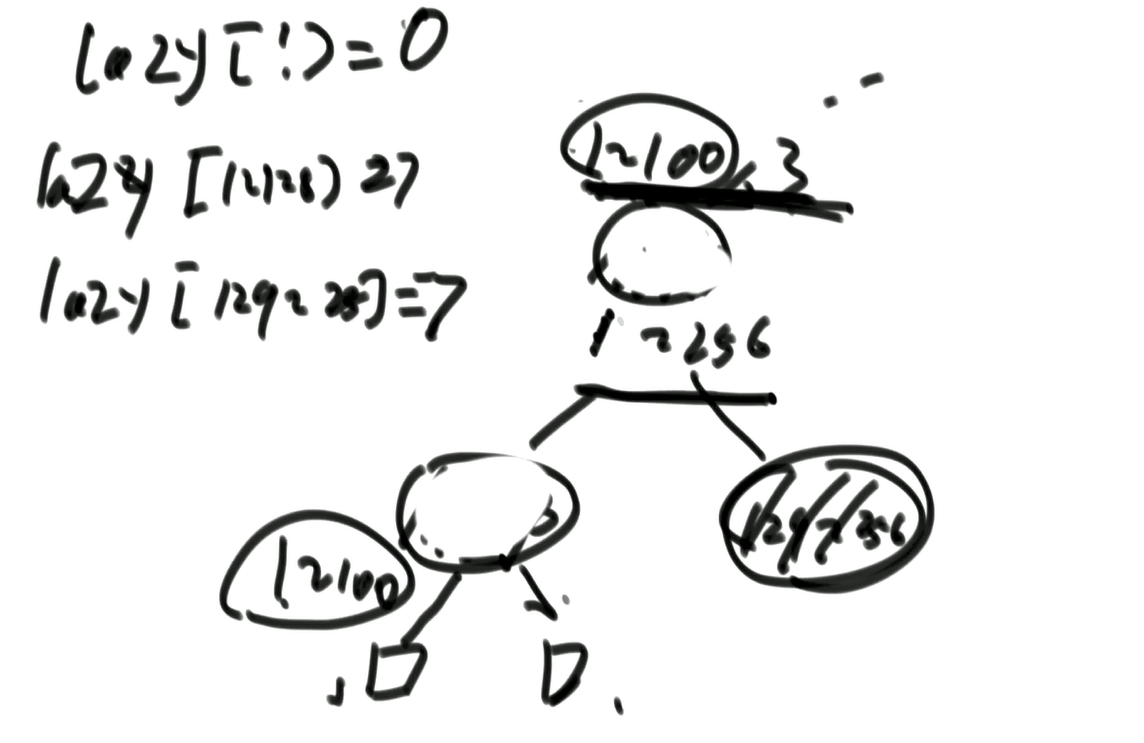 lazy[1]=0
lazy[1~128]=7
lazy[129~256]=7
1~100, 3
1~256
129~256
1~100